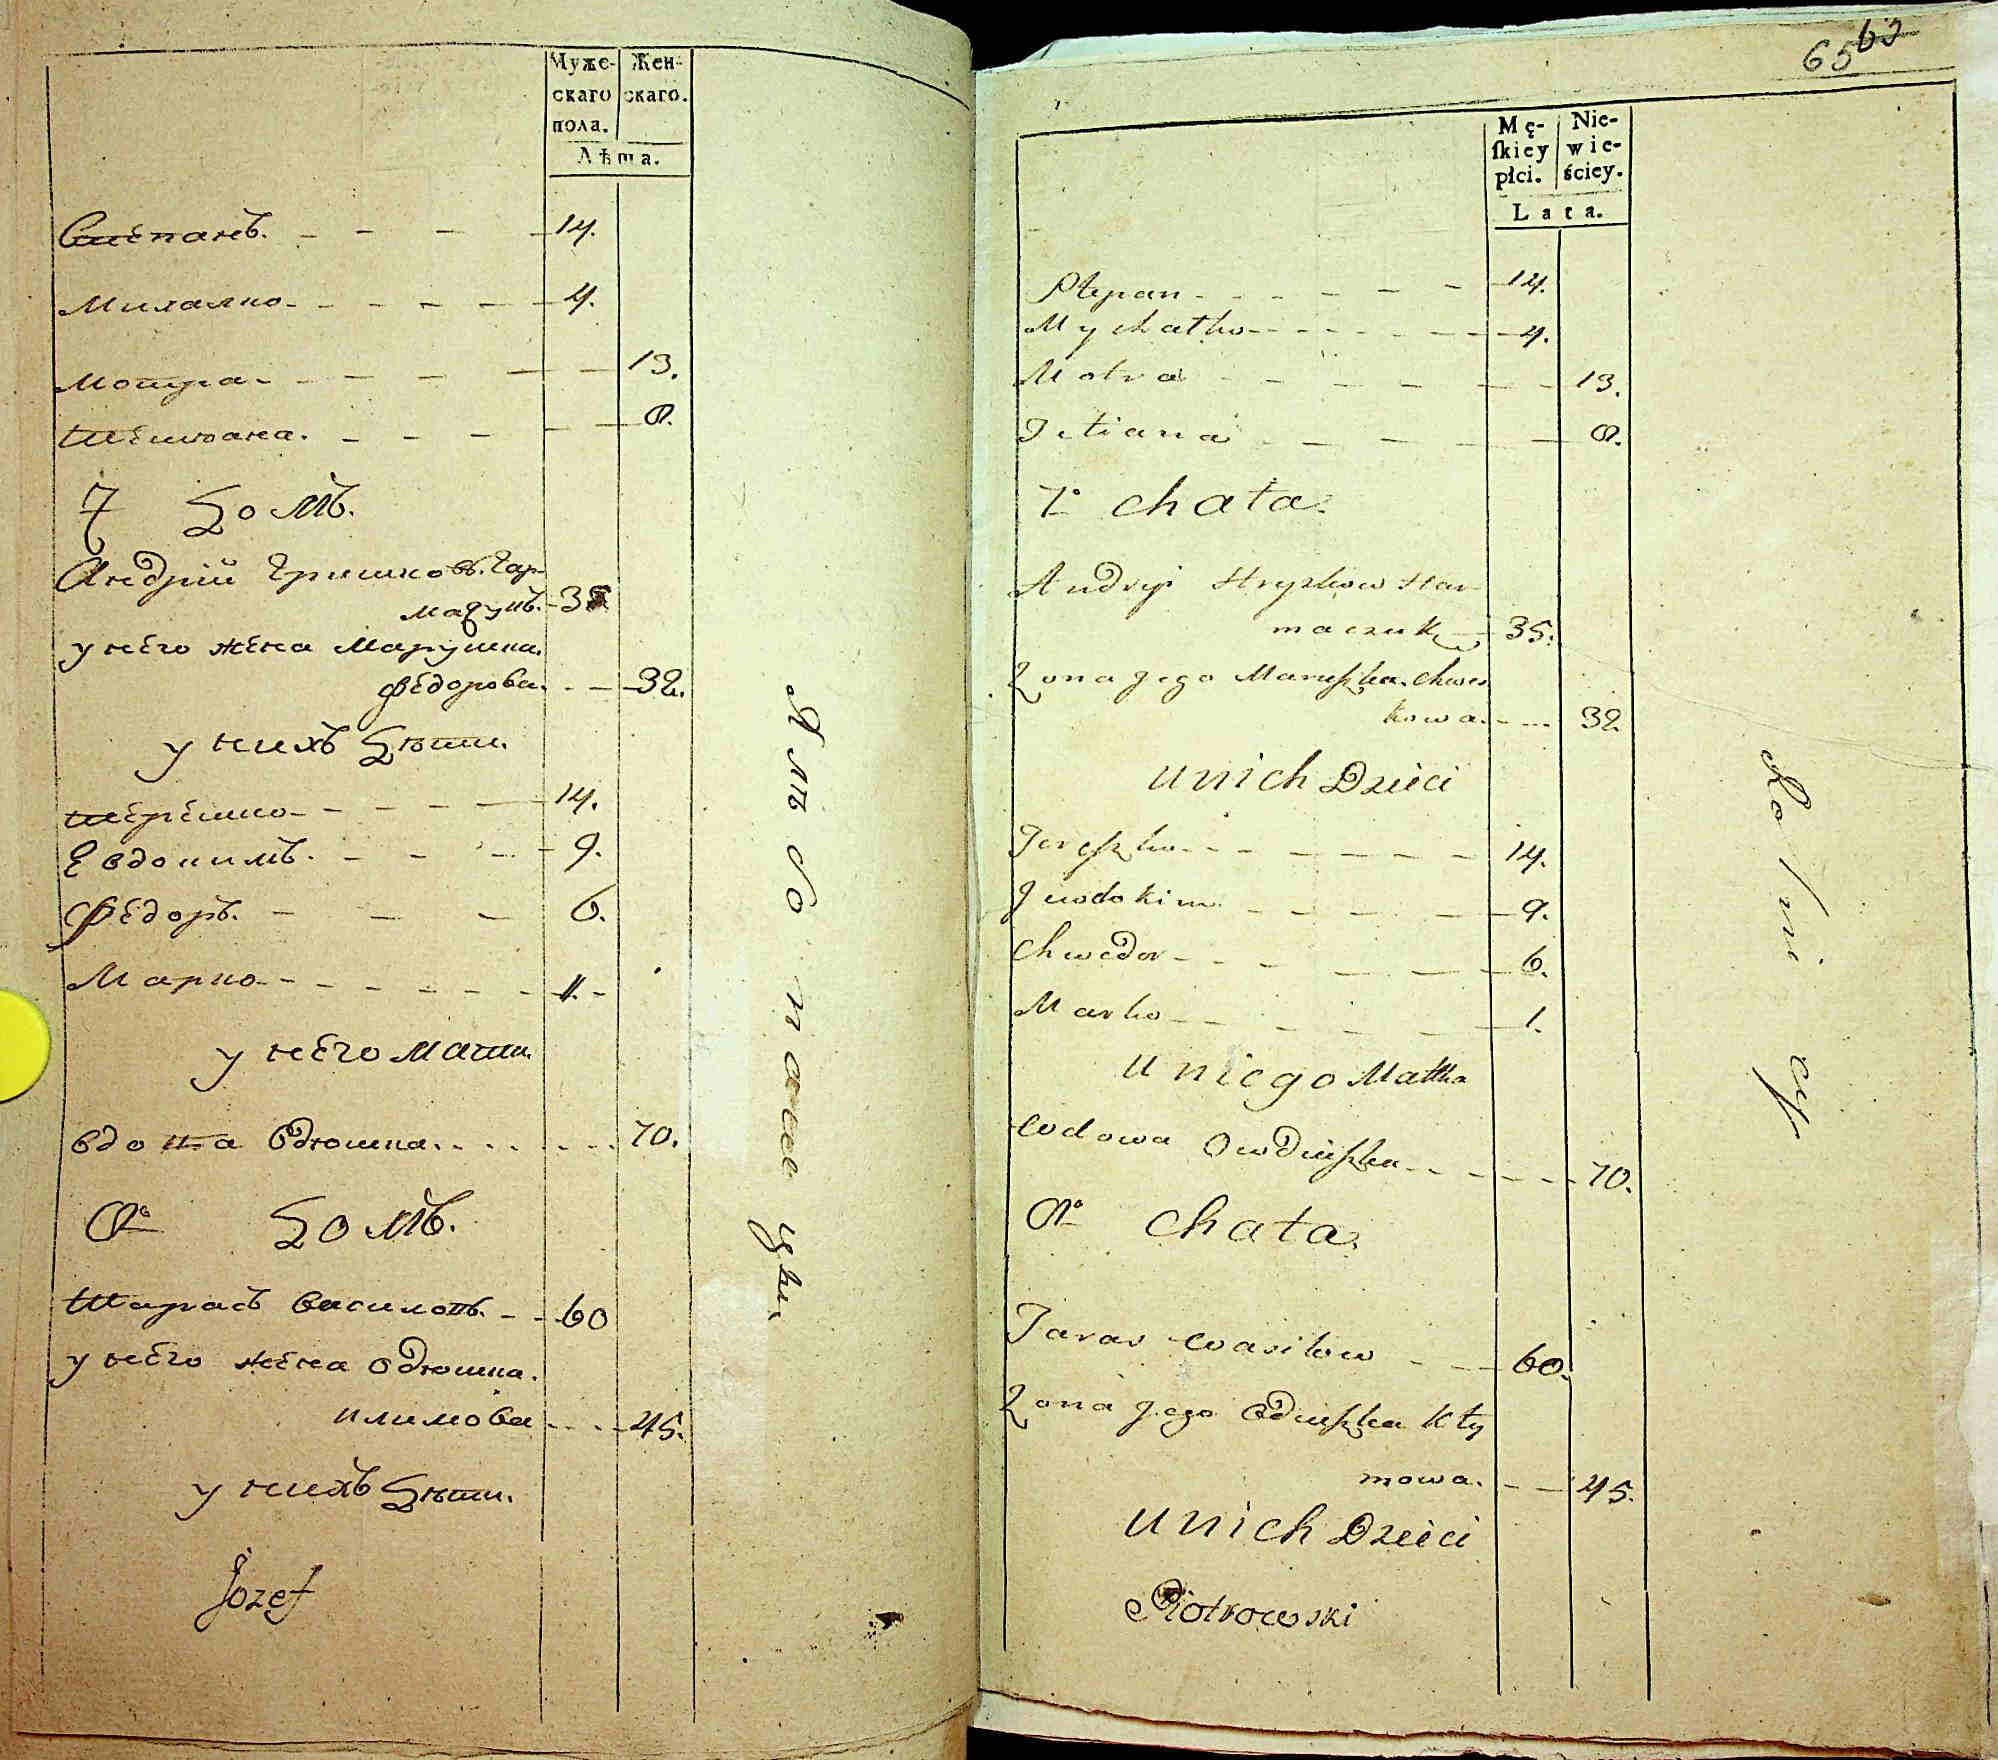 Муже-
скаго
пола.
Жен-
скаго.
Лѣта.
Степанъ. 14.
Михалко 4.
Мотра 13.
Тетюана. 8.
7 Домъ.
Андрій Гришковъ. Гар-
мазукъ. 35
у него жена Марушка.
Федорова. 32.
у нихъ Дѣти.
Терешко 14.
Евдокимъ. 9.
Федоръ. 6.
Марко 1.
у него мати.
вдова Одюшка. 70.
8° Домъ.
Тарасъ Василовъ. 60
у него жена Одюшка.
климова 45.
у нихъ Дѣти.
Jozef
65 63
Mę-
skiey
płci.
Nie-
wie-
ściey.
Lata.
Stepan 14.
Mychałko 4.
Motra 13.
Tetiana 8.
7° Chata.
Andryi Hryszkow Har-
maczuk 35.
Zona Jego Maruszka. Chwed
kowa. 32
U nich Dzieci
Tereszko 14.
Jewdokim 9.
Chwedor 6.
Marko 1.
U niego Matka
Wdowa Owdiuszka 70.
8° Chata.
Taras Wasilow 60.
Zona Jego Odiuszka Kły
mowa. 45.
U nich Dzieci
Piotrowski